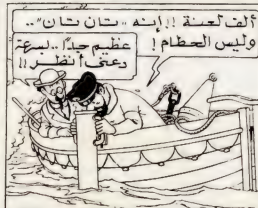 ألف لعنة !! إنه «تان تان»..
وليس الحطام !
عظيم جداً.. بسرعة
دعنى أنظر !!